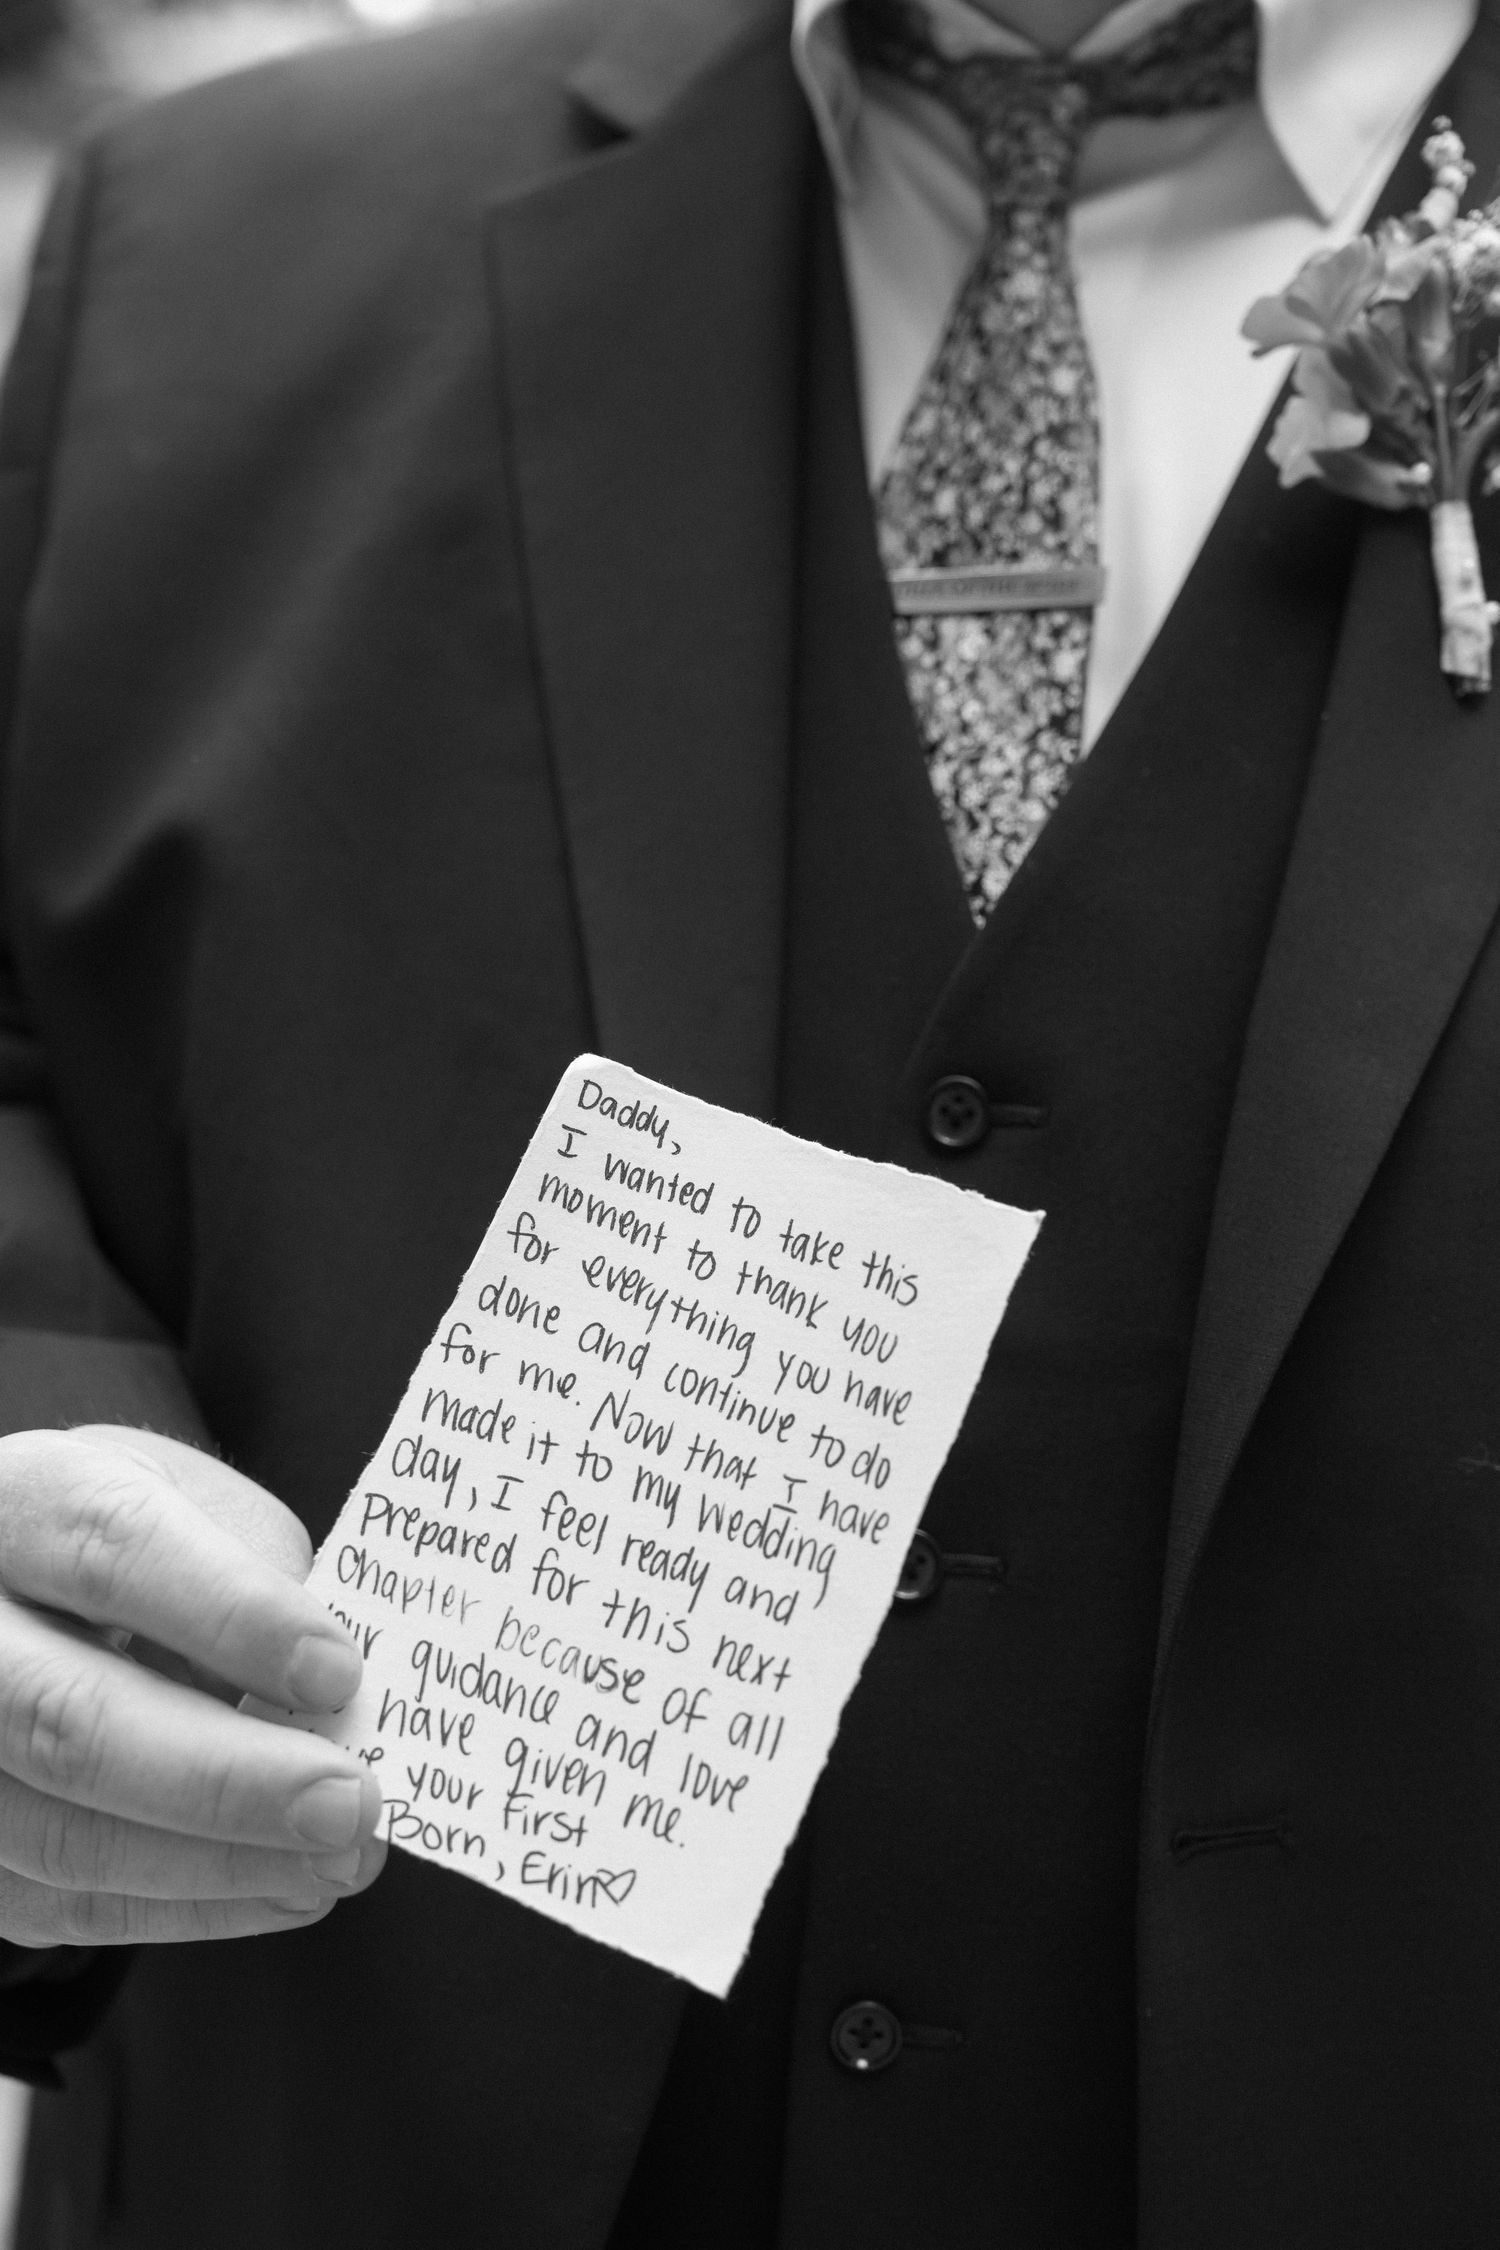 FATHER OF THE BRIDE
Daddy,
I wanted to take this
moment to thank you
for everything you have
done and continue to do
for me. Now that I have
made it to my wedding
day, I feel ready and
Prepared for this next
Chapter because of all
your guidance and love
have given me.
your First
Born, Erin♡